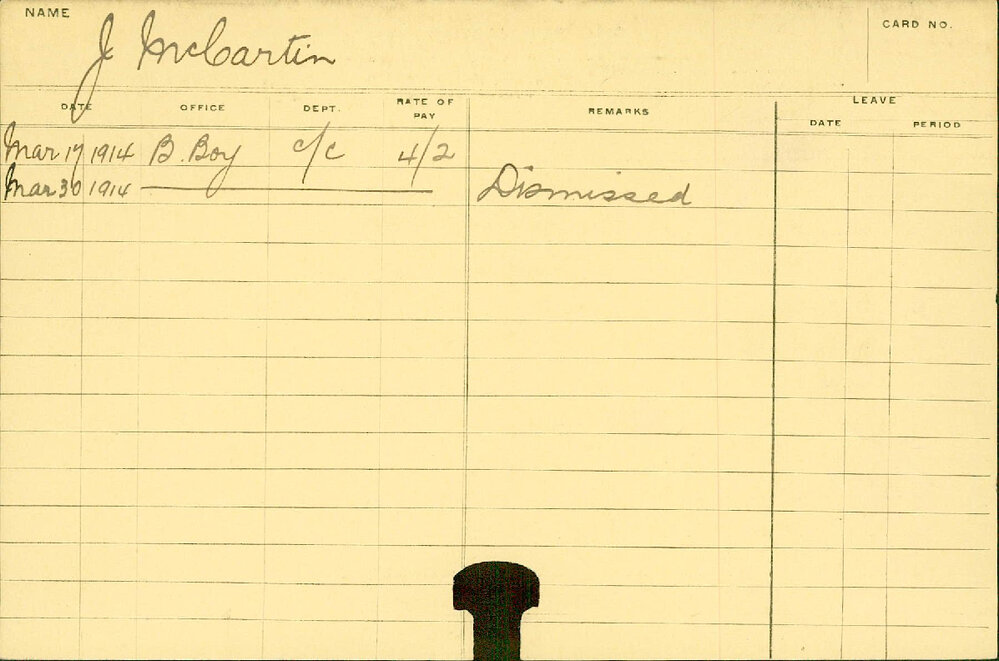 NAME
J McCartin
CARD NO.
DATE OFFICE DEPT. RATE OF PAY REMARKS LEAVE
DATE PERIOD
Mar 17 1914 B. Boy c/c 4/2
Mar 30 1914 Dismissed